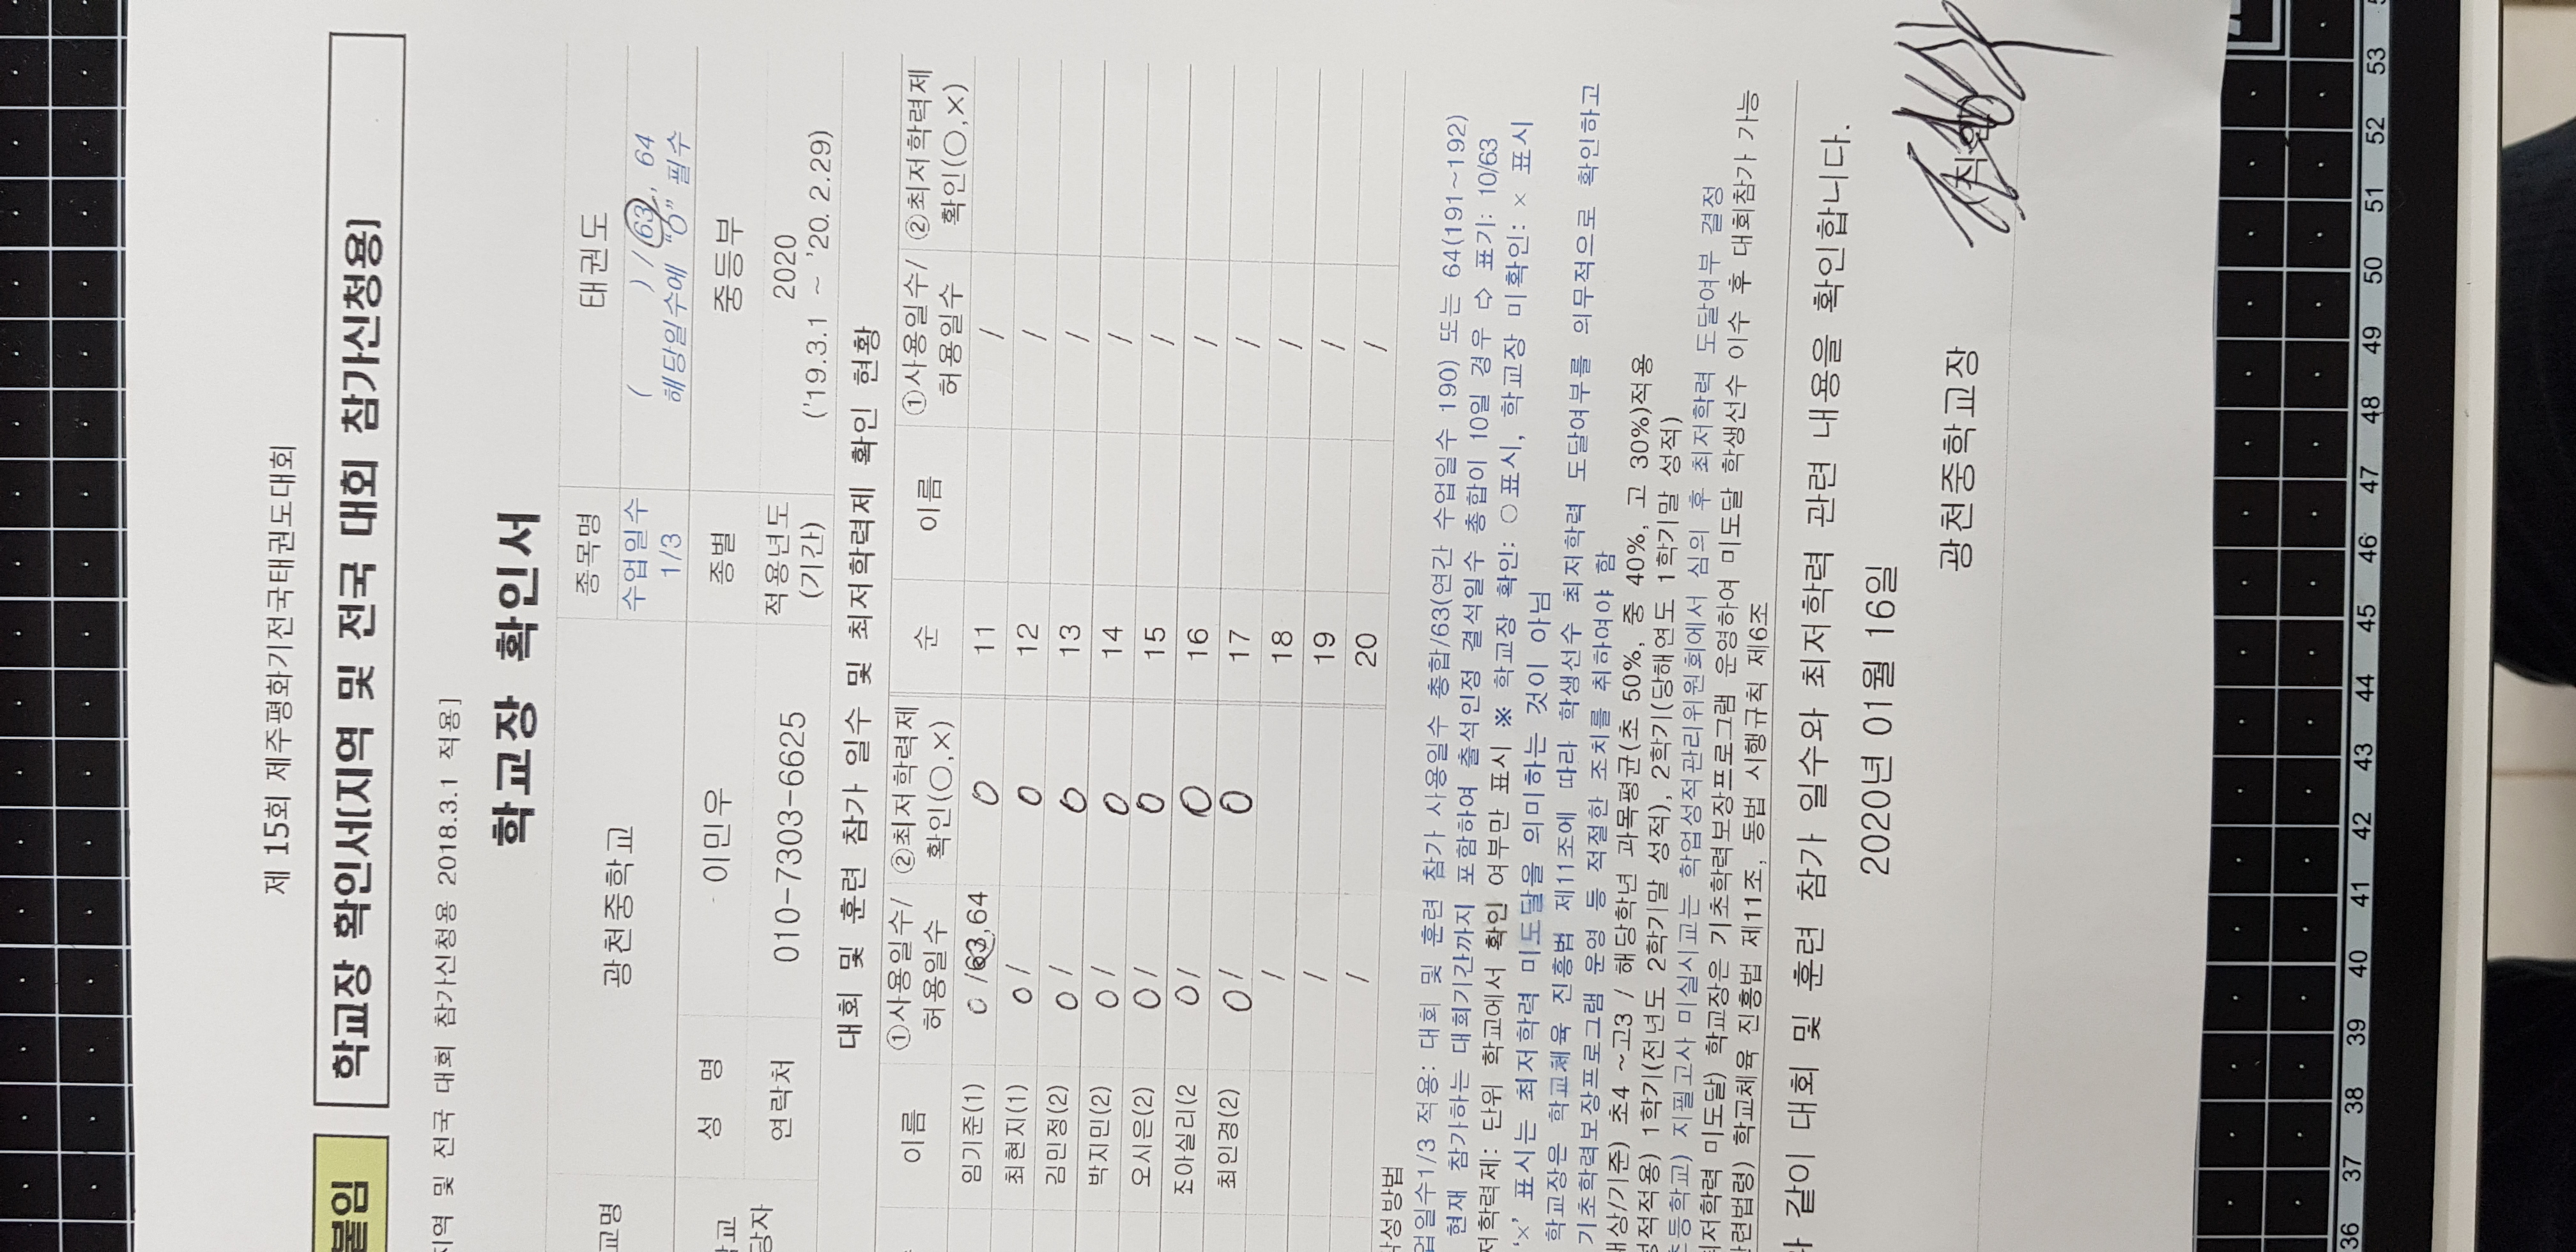 제 15회 제주평화기전국태권도대회
붙임 학교장 확인서(지역 및 전국 대회 참가신청용)
지역 및 전국 대회 참가신청용 2018.3.1 적용]
학교장 확인서
교명 광천중학교 종목명 태권도
수업일수 1/3 ( ) / 63, 64
해당일수에 "O" 필수
학교 당자 성 명 이민우 종별 중등부
연락처 010-7303-6625 적용년도 (기간) 2020
('19.3.1 ~ '20.2.29)
대회 및 훈련 참가 일수 및 최저학력제 확인 현황
이름 ①사용일수/허용일수 ②최저학력제 확인(○,×) 순 이름 ①사용일수/허용일수 ②최저학력제 확인(○,×)
임기준(1) 0 /63,64 O 11 /
최현지(1) 0 / O 12 /
김민정(2) 0 / O 13 /
박지민(2) 0 / O 14 /
오시은(2) 0 / O 15 /
조아실리(2 0 / O 16 /
최인경(2) 0 / O 17 /
/ 18 /
/ 19 /
/ 20 /
작성방법
업일수1/3 적용: 대회 및 훈련 참가 사용일수 총합/63(연간 수업일수 190) 또는 64(191~192)
현재 참가하는 대회기간까지 포함하여 출석인정 결석일수 총합이 10일 경우 ⇨ 표기: 10/63
저학력제: 단위 학교에서 확인 여부만 표시 ※ 학교장 확인: ○ 표시, 학교장 미확인: × 표시
'×' 표시는 최저학력 미도달을 의미하는 것이 아님
학교장은 학교체육 진흥법 제11조에 따라 학생선수 최저학력 도달여부를 의무적으로 확인하고
기초학력보장프로그램 운영 등 적절한 조치를 취하여야 함
대상/기준) 초4 ~고3 / 해당학년 과목평균(초 50%, 중 40%, 고 30%)적용
성적적용) 1학기(전년도 2학기말 성적), 2학기(당해연도 1학기말 성적)
초등학교) 지필고사 미실시교는 학업성적관리위원회에서 심의 후 최저학력 도달여부 결정
최저학력 미도달) 학교장은 기초학력보장프로그램 운영하여 미도달 학생선수 이수 후 대회참가 가능
관련법령) 학교체육 진흥법 제11조, 동법 시행규칙 제6조
같이 대회 및 훈련 참가 일수와 최저학력 관련 내용을 확인합니다.
2020년 01월 16일
광천중학교장 직인
36 37 38 39 40 41 42 43 44 45 46 47 48 49 50 51 52 53